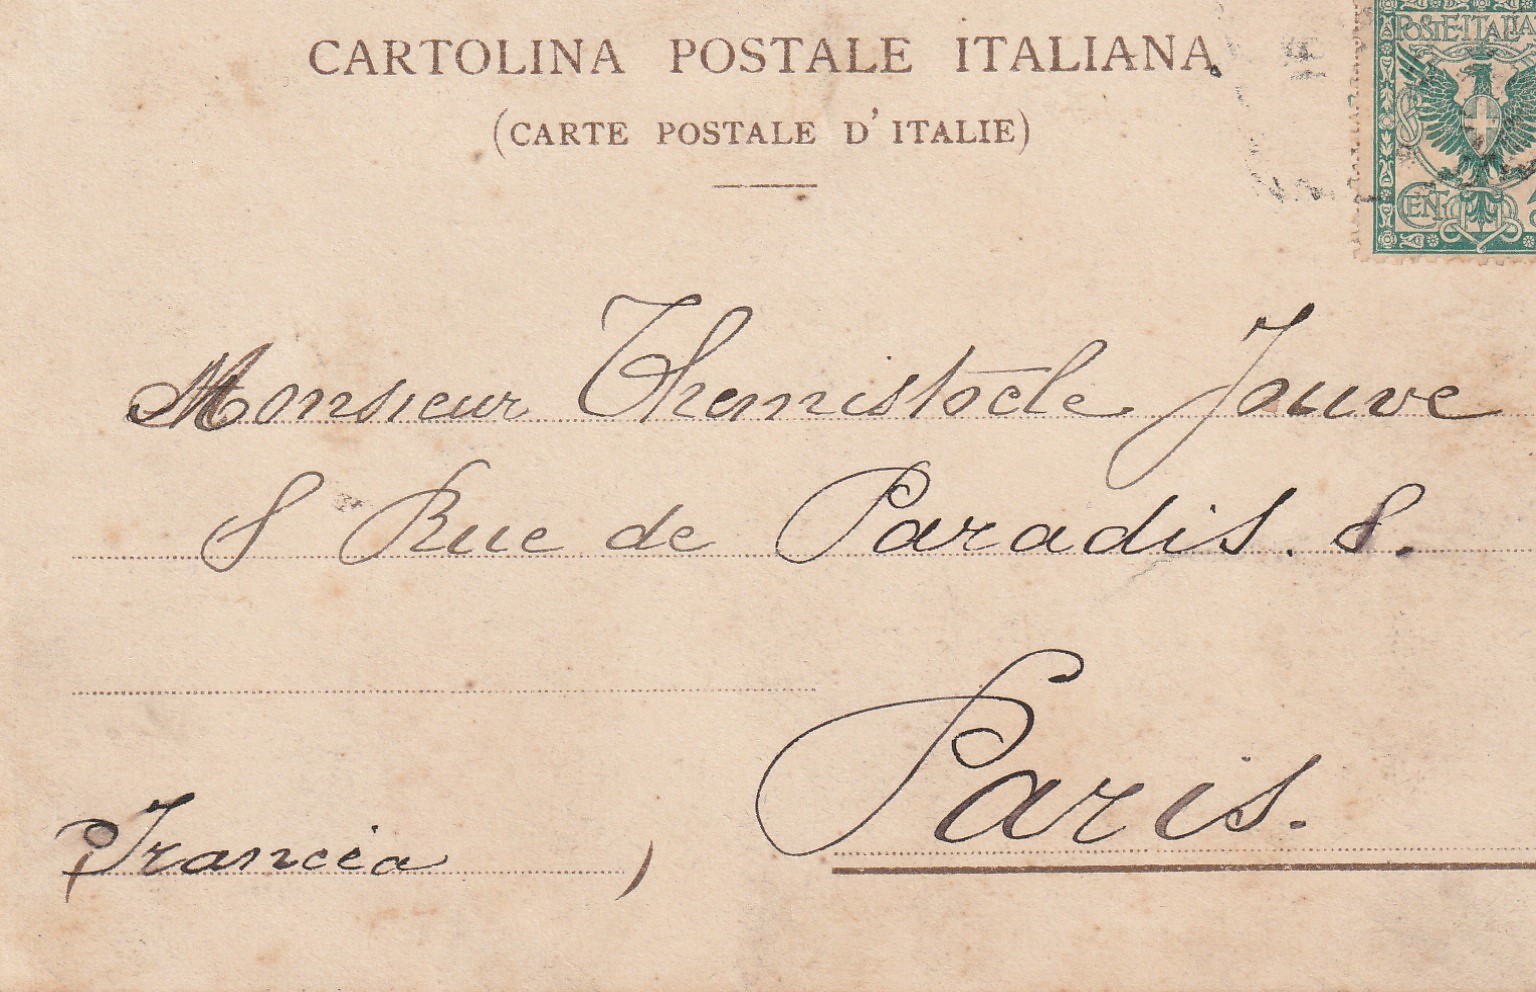 CARTOLINA POSTALE ITALIANA
(CARTE POSTALE D'ITALIE)
POSTE ITALIA
CENT
Monsieur Themistocle Jouve
8 Rue de Paradis. 8.
Paris.
(Francia)